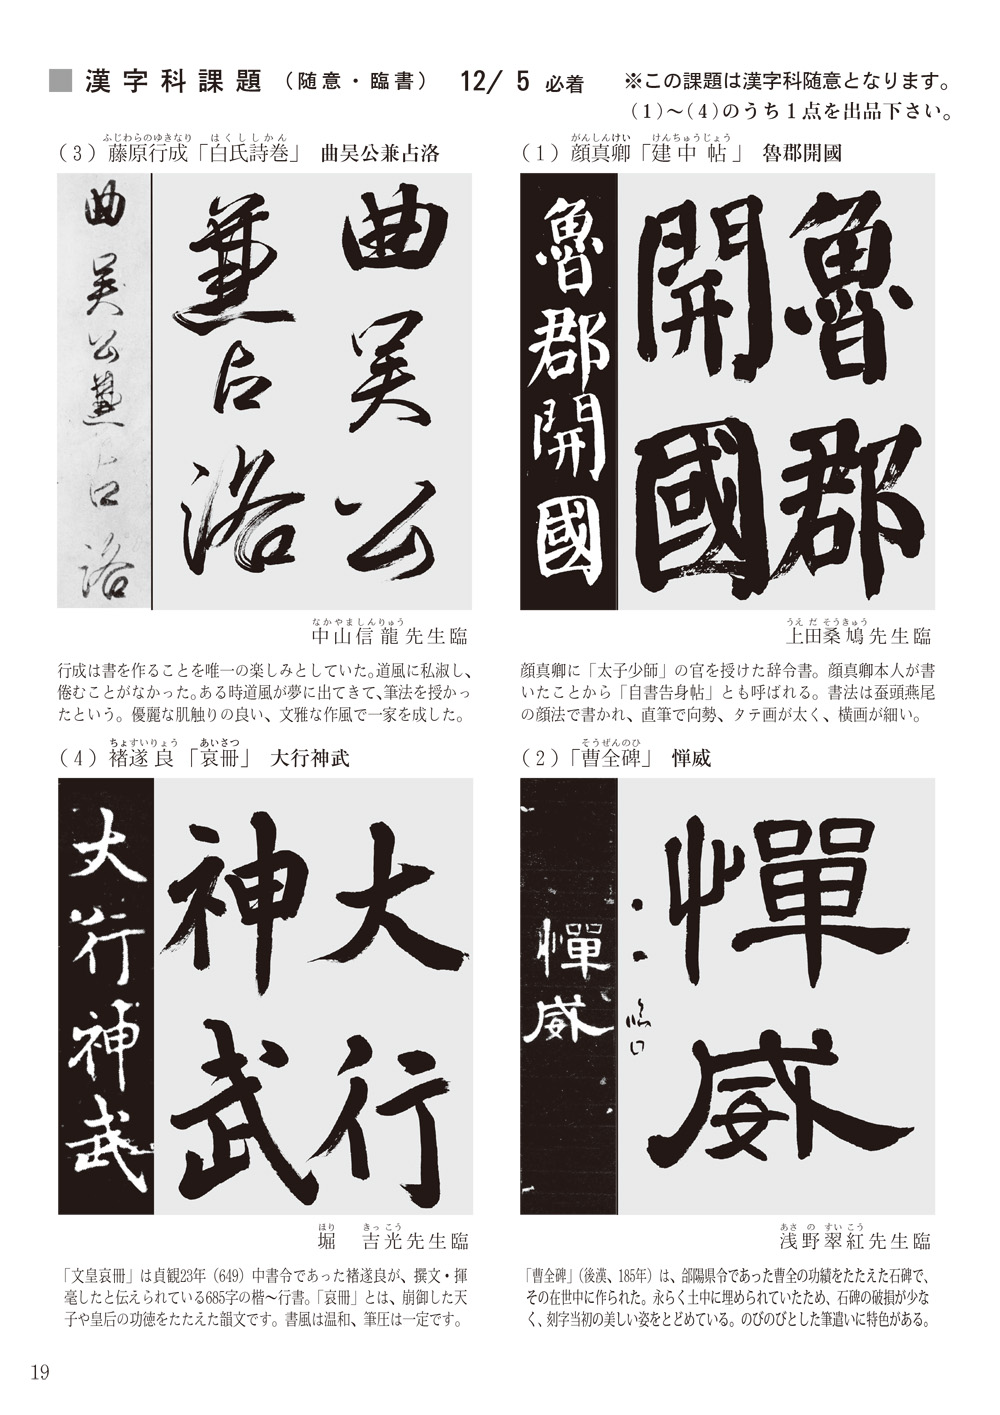 ■漢字科課題（随意・臨書） 12/5必着 ※この課題は漢字科随意となります。
（1）～（4）のうち１点を出品下さい。
がんしんけい けんちゅうじょう
（1）顔真卿「建中帖」 魯郡開國
魯郡開國
魯郡
開國
うえだそうきゅう
上田桑鳩先生臨
顔真卿に「太子少師」の官を授けた辞令書。顔真卿本人が書
いたことから「自書告身帖」とも呼ばれる。書法は蚕頭燕尾
の顔法で書かれ、直筆で向勢、タテ画が太く、横画が細い。
そうぜんのひ
（2）「曹全碑」 憚威
憚威
憚威
臨
あさのすいこう
浅野翠紅先生臨
「曹全碑」（後漢、185年）は、郃陽県令であった曹全の功績をたたえた石碑で、
その在世中に作られた。永らく土中に埋められていたため、石碑の破損が少な
く、刻字当初の美しい姿をとどめている。のびのびとした筆遣いに特色がある。
ふじわらのゆきなり はくししかん
（3）藤原行成「白氏詩巻」 曲吴公兼占洛
曲吴公兼占洛
曲吴公
兼占洛
なかやましんりゅう
中山信龍先生臨
行成は書を作ることを唯一の楽しみとしていた。道風に私淑し、
倦むことがなかった。ある時道風が夢に出てきて、筆法を授かっ
たという。優麗な肌触りの良い、文雅な作風で一家を成した。
ちょすいりょう あいさつ
（4）褚遂良「哀冊」 大行神武
大行神武
大行
神武
ほり きっこう
堀 吉光先生臨
「文皇哀冊」は貞観23年（649）中書令であった褚遂良が、撰文・揮
毫したと伝えられている685字の楷～行書。「哀冊」とは、崩御した天
子や皇后の功徳をたたえた韻文です。書風は温和、筆圧は一定です。
19